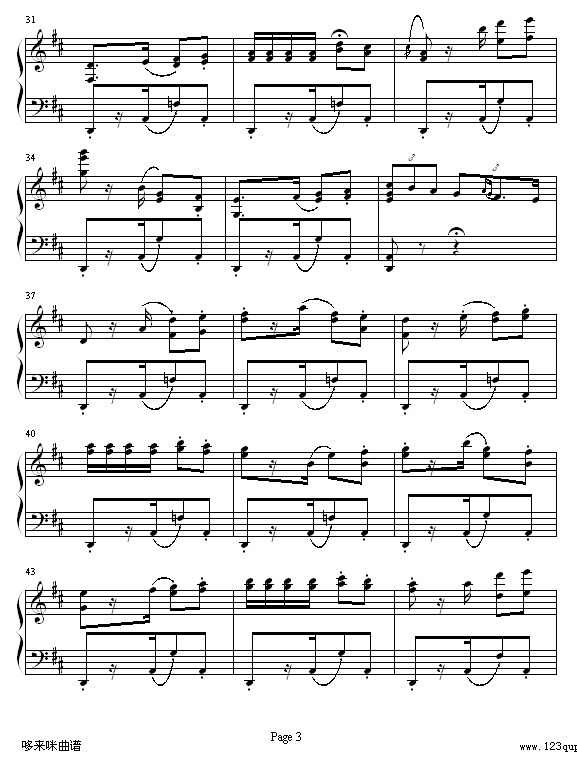 31
34
3
3
37
40
43
Page 3
哆来咪曲谱
www.123qup